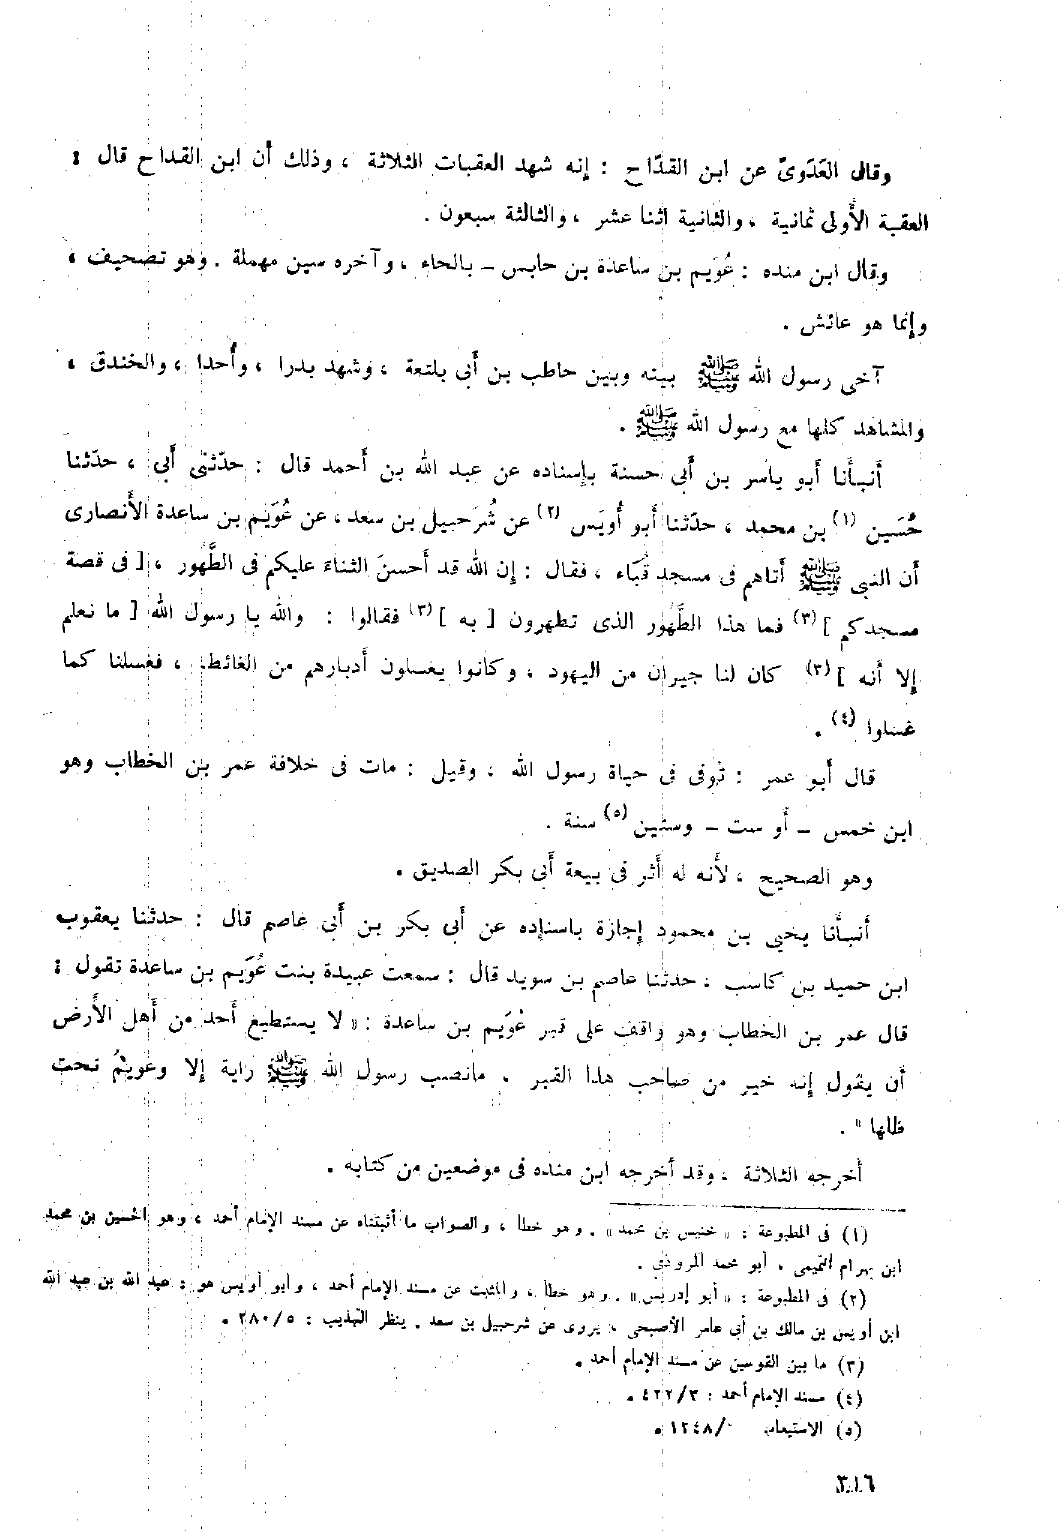 وقال العَدَوىّ عن ابن القدّاح : إنه شهد العقبات الثلاثة ، وذلك أن ابن القداح قال :
العقبة الأولى ثمانية ، والثانية اثنا عشر ، والثالثة سبعون .
وقال ابن منده : عُوَيم بن ساعدة بن حابس – بالحاء ، وآخره سين مهملة . وهو تصحيف ،
وإنما هو عائش .
آخى رسول الله ﷺ بينه وبين حاطب بن أبى بلتعة ، وشهد بدرا ، وأحدا ، والخندق ،
والمشاهد كلها مع رسول الله ﷺ .
أنبأنا أبو ياسر بن أبى حسنة بإسناده عن عبد الله بن أحمد قال : حدّثنى أبى ، حدّثنا
حُسَين (١) بن محمد ، حدّثنا أبو أُويَس (٢) عن شُرَحبيل بن سعد ، عن عُوَيم بن ساعدة الأنصارى
أن النبى ﷺ أتاهم فى مسجد قُبَاء ، فقال : إن الله قد أحسنَ الثناءَ عليكم فى الطَّهُور ، [ فى قصة
مسجدكم ] (٣) فما هذا الطَّهُور الذى تطهرون [ به ] (٣) فقالوا : والله يا رسول الله [ ما نعلم
إلا أنه ] (٣) كان لنا جيران من اليهود ، وكانوا يغسلون أدبارهم من الغائط ، فغسلنا كما
غسلوا (٤) .
قال أبو عمر : تُوفى فى حياة رسول الله ، وقيل : مات فى خلافة عمر بن الخطاب وهو
ابن خمس – أو ست – وستين (٥) سنة .
وهو الصحيح ، لأنه له أثر فى بيعة أبى بكر الصديق .
أنبأنا يحيى بن محمود إجازة باسناده عن أبى بكر بن أبى عاصم قال : حدثنا يعقوب
ابن حميد بن كاسب ، حدثنا عاصم بن سويد قال : سمعت عبيدة بنت عُوَيم بن ساعدة تقول :
قال عمر بن الخطاب وهو واقف على قبر عُوَيم بن ساعدة : « لا يستطيع أحد من أهل الأرض
أن يقول إنه خير من صاحب هذا القبر ، مانصب رسول الله ﷺ راية إلا وعُويمٌ تحت
ظلها » .
أخرجه الثلاثة ، وقد أخرجه ابن منده فى موضعين من كتابه .
(١) فى المطبوعة : « خنيس بن محمد » . وهو خطأ ، والصواب ما أثبتناه عن مسند الإمام أحمد ، وهو الحسين بن محمد
ابن بهرام التميمى ، أبو محمد المروذى .
(٢) فى المطبوعة : « أبو إدريس » . وهو خطأ ، والمثبت عن مسند الإمام أحمد ، وأبو أويس هو : عبد الله بن عبد الله
ابن أويس بن مالك بن أبى عامر الأصبحى ، يروى عن شرحبيل بن سعد . ينظر التهذيب : ٢٨٠/٥ .
(٣) ما بين القوسين عن مسند الإمام أحمد .
(٤) مسند الإمام أحمد : ٤٢٢/٣ .
(٥) الاستيعاب /١٢٤٨ .
٣١٦